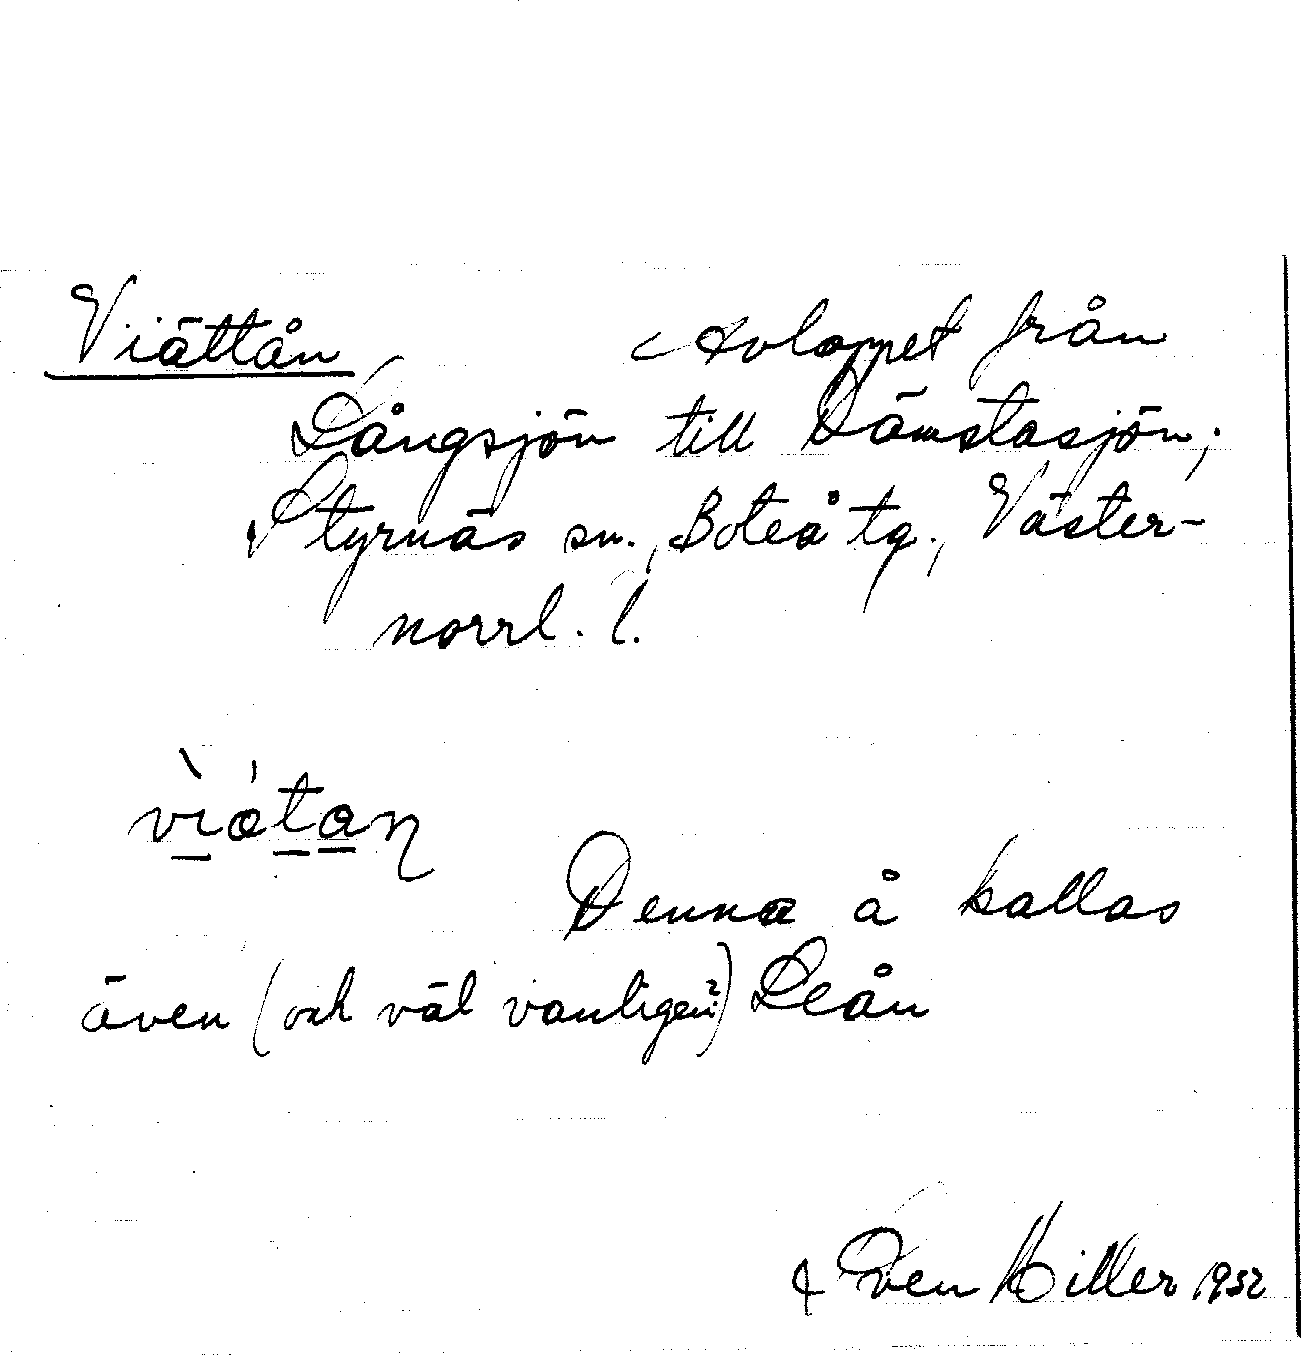 Viättån Avloppet från
Långsjön till Dämstasjön;
Styrnäs sn., Boteå tg., Väster-
norrl. l.
Denna å kallas
även (och väl vanligen?) Leån
Sven Hiller 1932